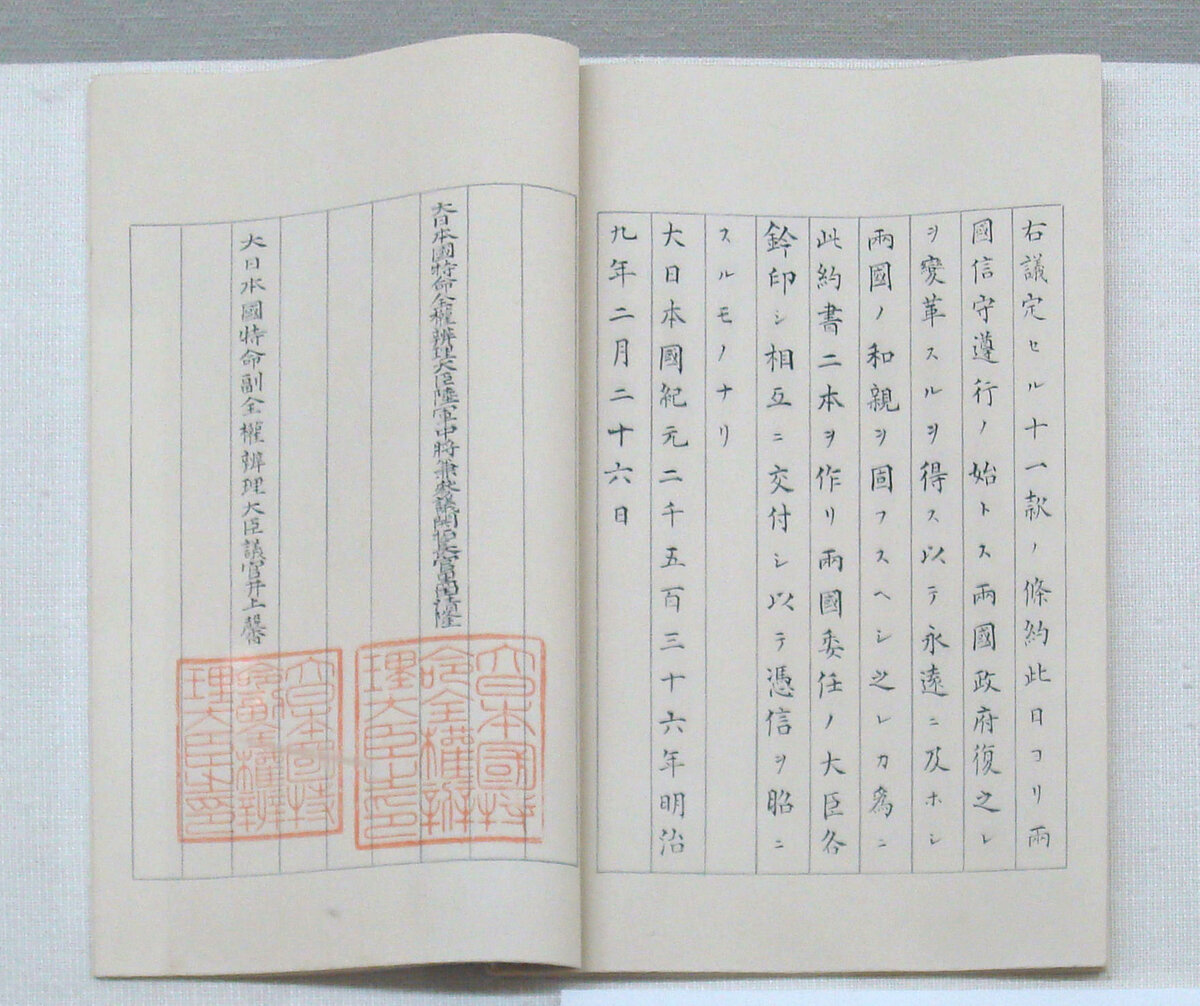 右議定セル十一款ノ條約此日ヨリ兩
國信守遵行ノ始トス兩國政府復之レ
ヲ變革スルヲ得ス以テ永遠ニ及ホシ
兩國ノ和親ヲ固フスヘシ之レカ爲ニ
此約書二本ヲ作リ兩國委任ノ大臣各
鈐印シ相互ニ交付シ以テ憑信ヲ昭ニ
スルモノナリ
大日本國紀元二千五百三十六年明治
九年二月二十六日
大日本國特命全權辨理大臣陸軍中將兼參議開拓長官黒田清隆
大日本國特命副全權辨理大臣議官井上馨
大日本國特
命全權辨
理大臣之印
大日本國特
命副全權辨
理大臣之印